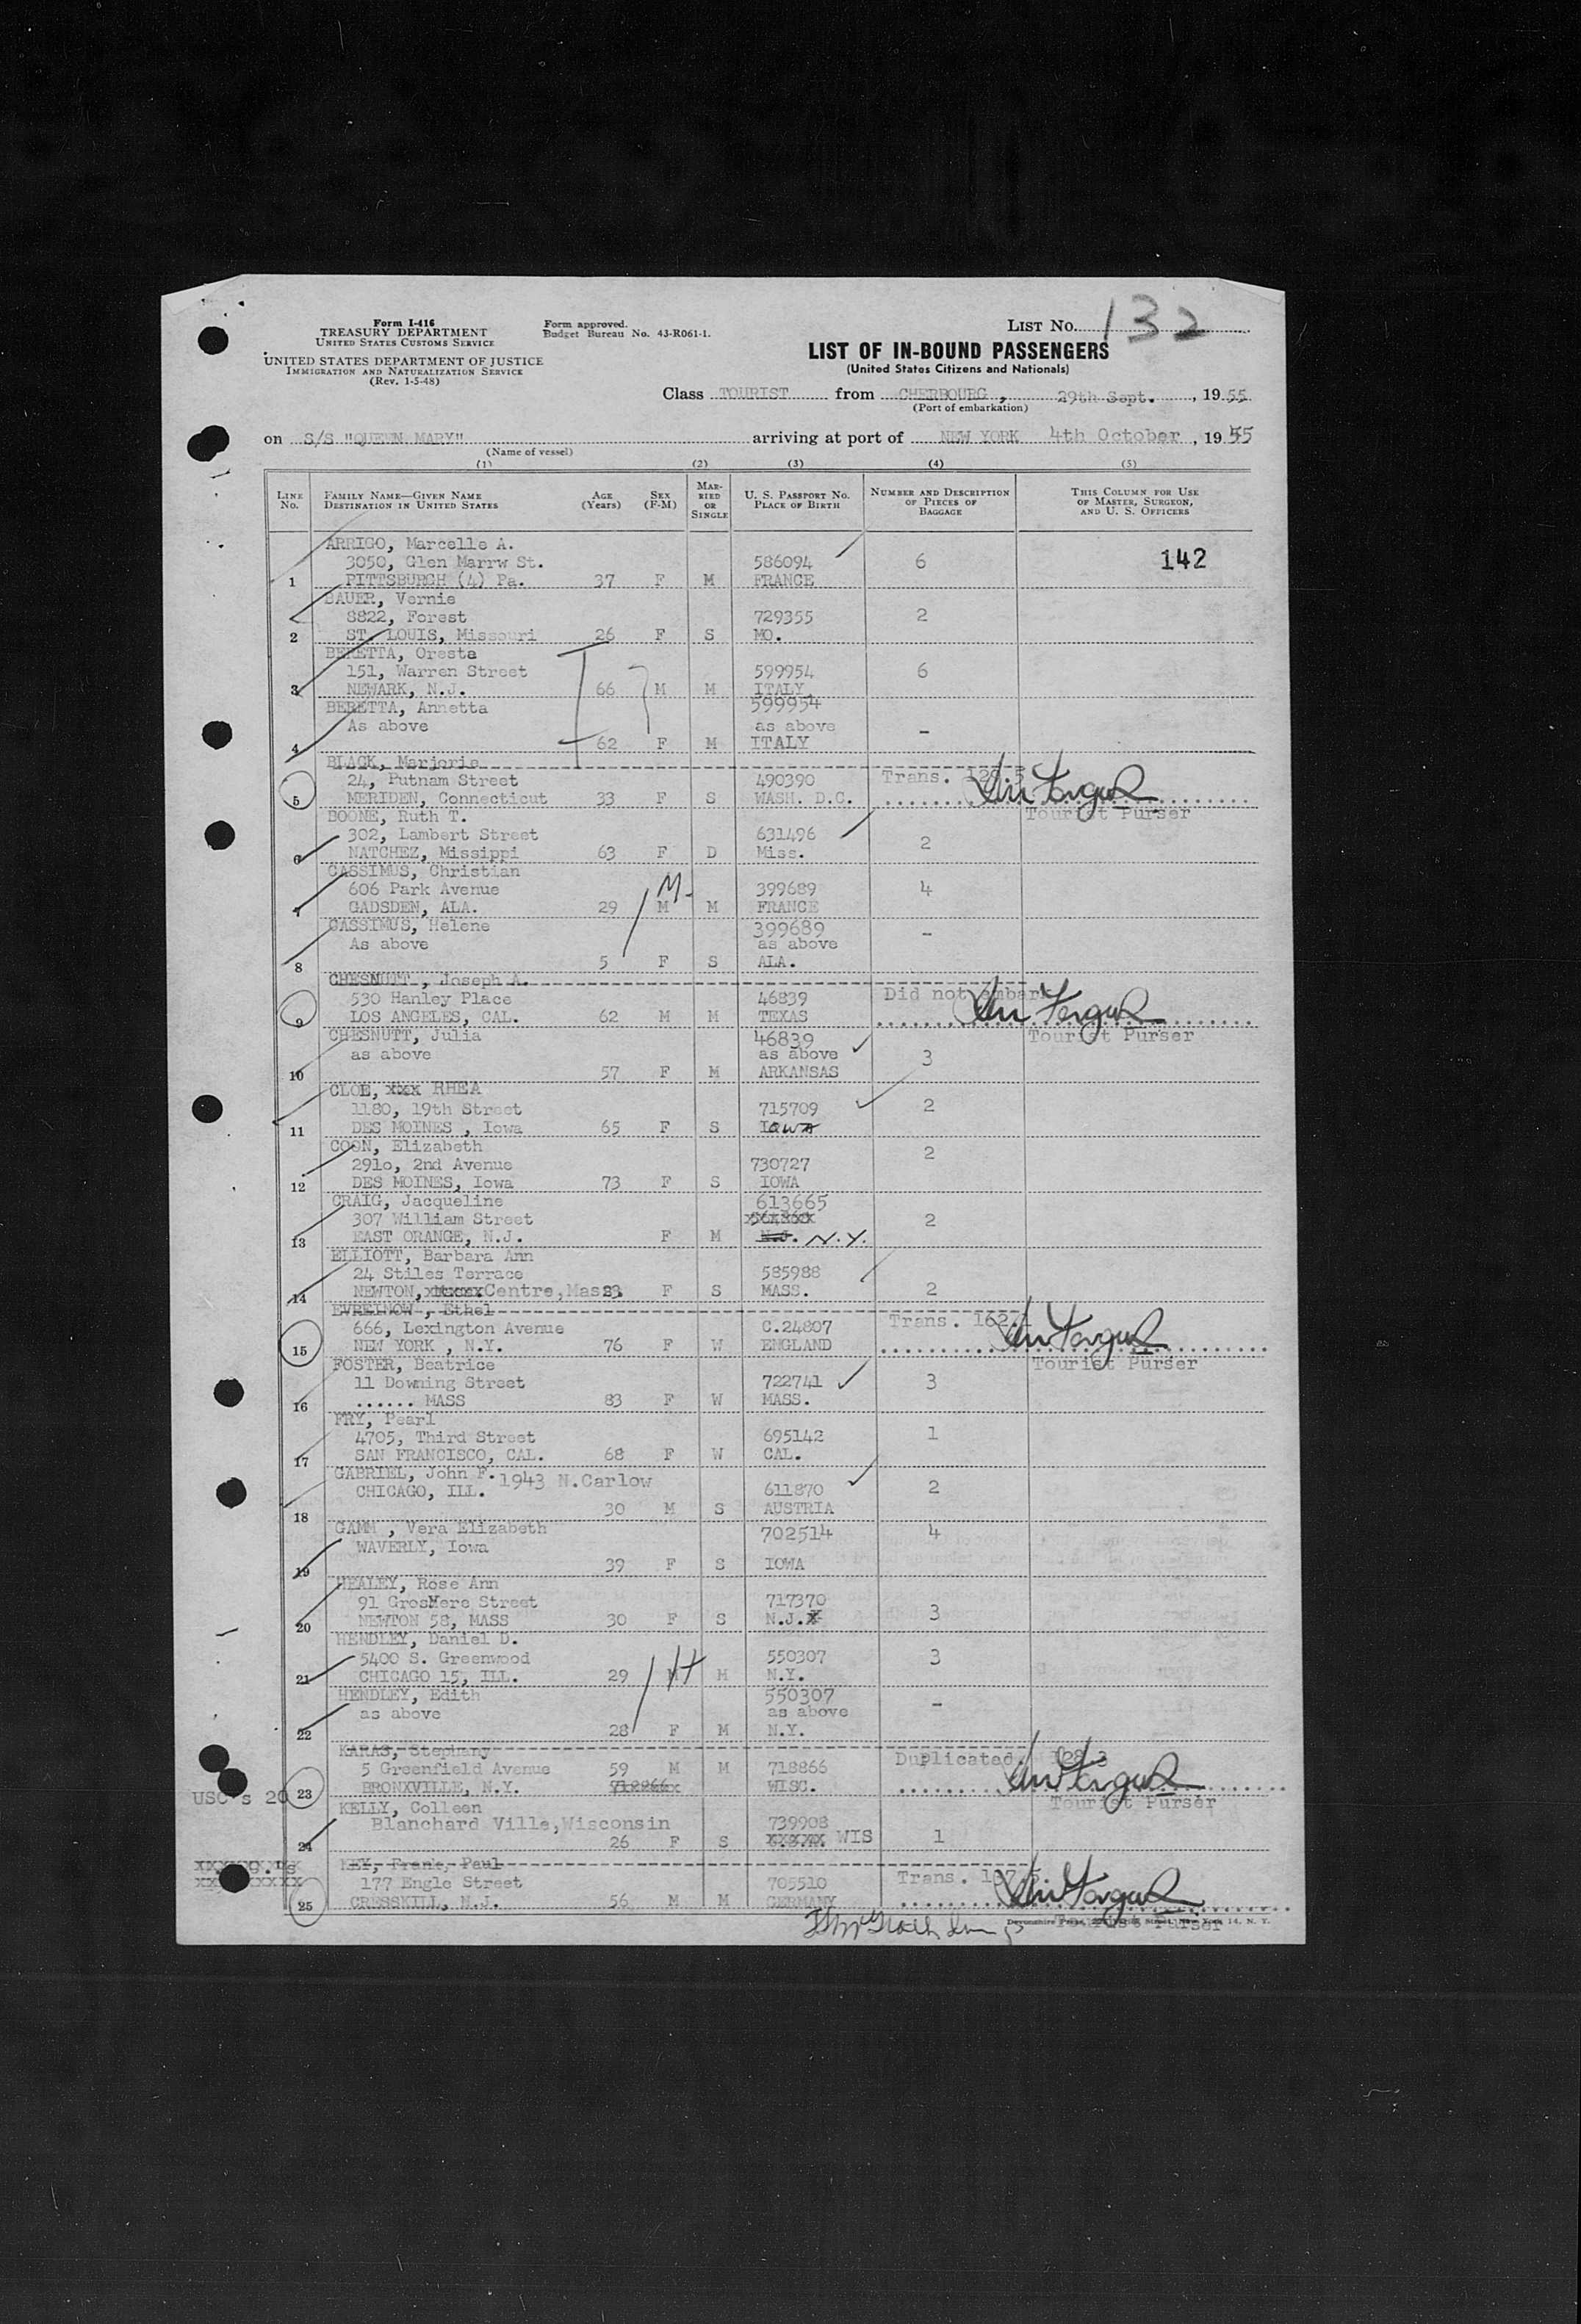 Form I-416
TREASURY DEPARTMENT
UNITED STATES CUSTOMS SERVICE
UNITED STATES DEPARTMENT OF JUSTICE
IMMIGRATION AND NATURALIZATION SERVICE
(Rev. 1-5-48)
Form approved.
Budget Bureau No. 43-R061-1.
LIST No. 132
LIST OF IN-BOUND PASSENGERS
(United States Citizens and Nationals)
Class TOURIST from CHERBOURG, 29th Sept., 1955
(Port of embarkation)
on S/S "QUEEN MARY" arriving at port of NEW YORK 4th October, 1955
(Name of vessel)
(1) (2) (3) (4) (5)
LINE No. FAMILY NAME—GIVEN NAME DESTINATION IN UNITED STATES AGE (Years) SEX (F-M) MARRIED OR SINGLE U. S. PASSPORT No. PLACE OF BIRTH NUMBER AND DESCRIPTION OF PIECES OF BAGGAGE THIS COLUMN FOR USE OF MASTER, SURGEON, AND U. S. OFFICERS
ARRIGO, Marcelle A.
3050, Glen Marrw St. 586094 6 142
1 PITTSBURGH (4) Pa. 37 F M FRANCE
BAUER, Vernie
8822, Forest 729355 2
2 ST. LOUIS, Missouri 26 F S MO.
BERETTA, Oresta
151, Warren Street 599954 6
3 NEWARK, N.J. 66 M M ITALY
BERETTA, Annetta 599954
As above as above -
4 62 F M ITALY
BLACK, Marjorie
24, Putnam Street 490390 Trans.
5 MERIDEN, Connecticut 33 F S WASH. D.C.
Tourist Purser
BOONE, Ruth T.
302, Lambert Street 631496 2
6 NATCHEZ, Missippi 63 F D Miss.
CASSIMUS, Christian
606 Park Avenue M. 399689 4
7 GADSDEN, ALA. 29 M M FRANCE
CASSIMUS, Helene 399689 -
As above as above
8 5 F S ALA.
CHESNUTT, Joseph A.
530 Hanley Place 46839 Did not embark
9 LOS ANGELES, CAL. 62 M M TEXAS
Tourist Purser
CHESNUTT, Julia 46839
as above as above 3
10 57 F M ARKANSAS
CLOE, xxx RHEA
1180, 19th Street 715709 2
11 DES MOINES, Iowa 65 F S Iowa
COON, Elizabeth 2
291o, 2nd Avenue 730727
12 DES MOINES, Iowa 73 F S IOWA
CRAIG, Jacqueline 613665
307 William Street 2
13 EAST ORANGE, N.J. F M N.J. N.Y.
ELLIOTT, Barbara Ann
24 Stiles Terrace 585988
14 NEWTON, Centre, Mass. 23 F S MASS. 2
EVREINOW, Ethel
666, Lexington Avenue C.24807 Trans. 162.
15 NEW YORK, N.Y. 76 F W ENGLAND
Tourist Purser
FOSTER, Beatrice
11 Downing Street 722741 3
16 ...... MASS 83 F W MASS.
FRY, Pearl
4705, Third Street 695142 1
17 SAN FRANCISCO, CAL. 68 F W CAL.
GABRIEL, John F. 1943 N.Carlow
CHICAGO, ILL. 611870 2
18 30 M S AUSTRIA
GAMM, Vera Elizabeth 702514 4
WAVERLY, Iowa
19 39 F S IOWA
HEALEY, Rose Ann
91 GrosMere Street 717370 3
20 NEWTON 58, MASS 30 F S N.J.
HENDLEY, Daniel D.
5400 S. Greenwood 550307 3
21 CHICAGO 15, ILL. 29 M H M N.Y.
HENDLEY, Edith 550307 -
as above as above
22 28 F M N.Y.
KARAS, Stephany
5 Greenfield Avenue 59 M M 718866 Duplicated
23 BRONXVILLE, N.Y. WISC.
USC's 20
Tourist Purser
KELLY, Colleen
Blanchard Ville, Wisconsin 739908
24 26 F S WIS 1
KEY, Frank, Paul
177 Engle Street 705510 Trans.
25 CRESSKILL, N.J. 56 M M GERMANY
Tourist Purser